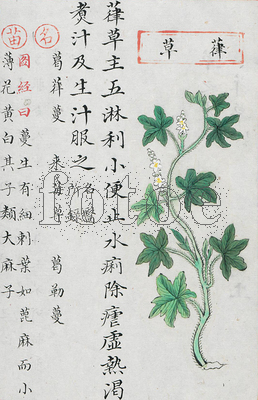 葎草
葎草主五淋利小便止水痢除瘧虛熱渴
煑汁及生汁服之名醫所錄
名
葛葎蔓 來莓草 葛勒蔓
苗
圖經曰蔓生有細刺葉如蓖麻而小
薄花黃白其子類大麻子
fotoe